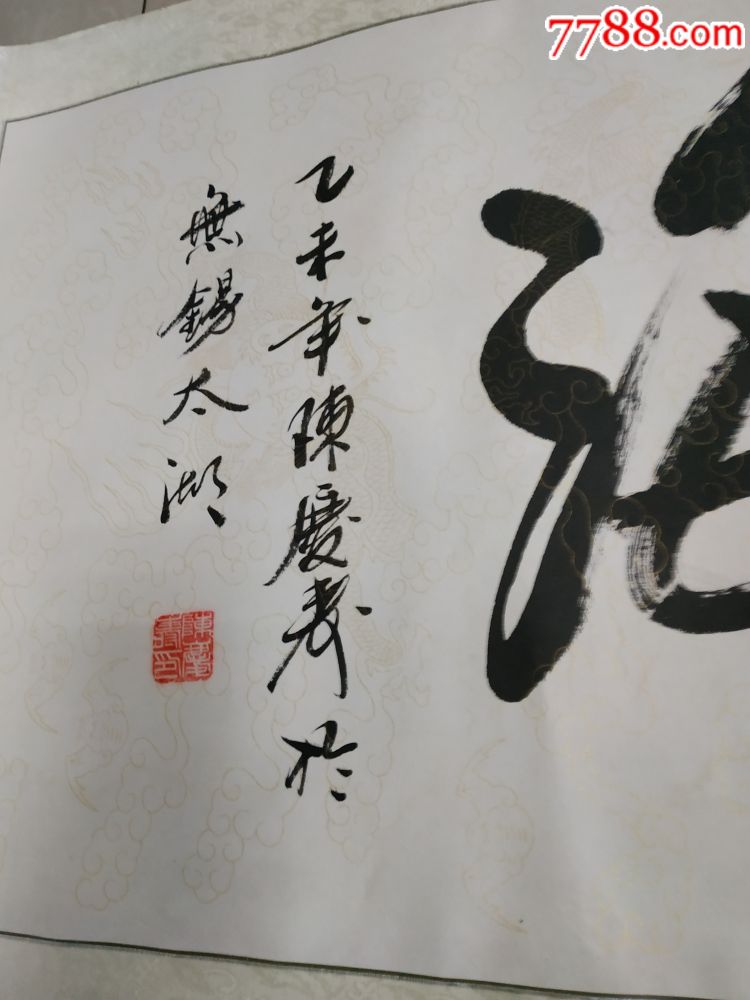 7788.com
乙未年陳慶寿於
無錫太湖
陳慶
壽印